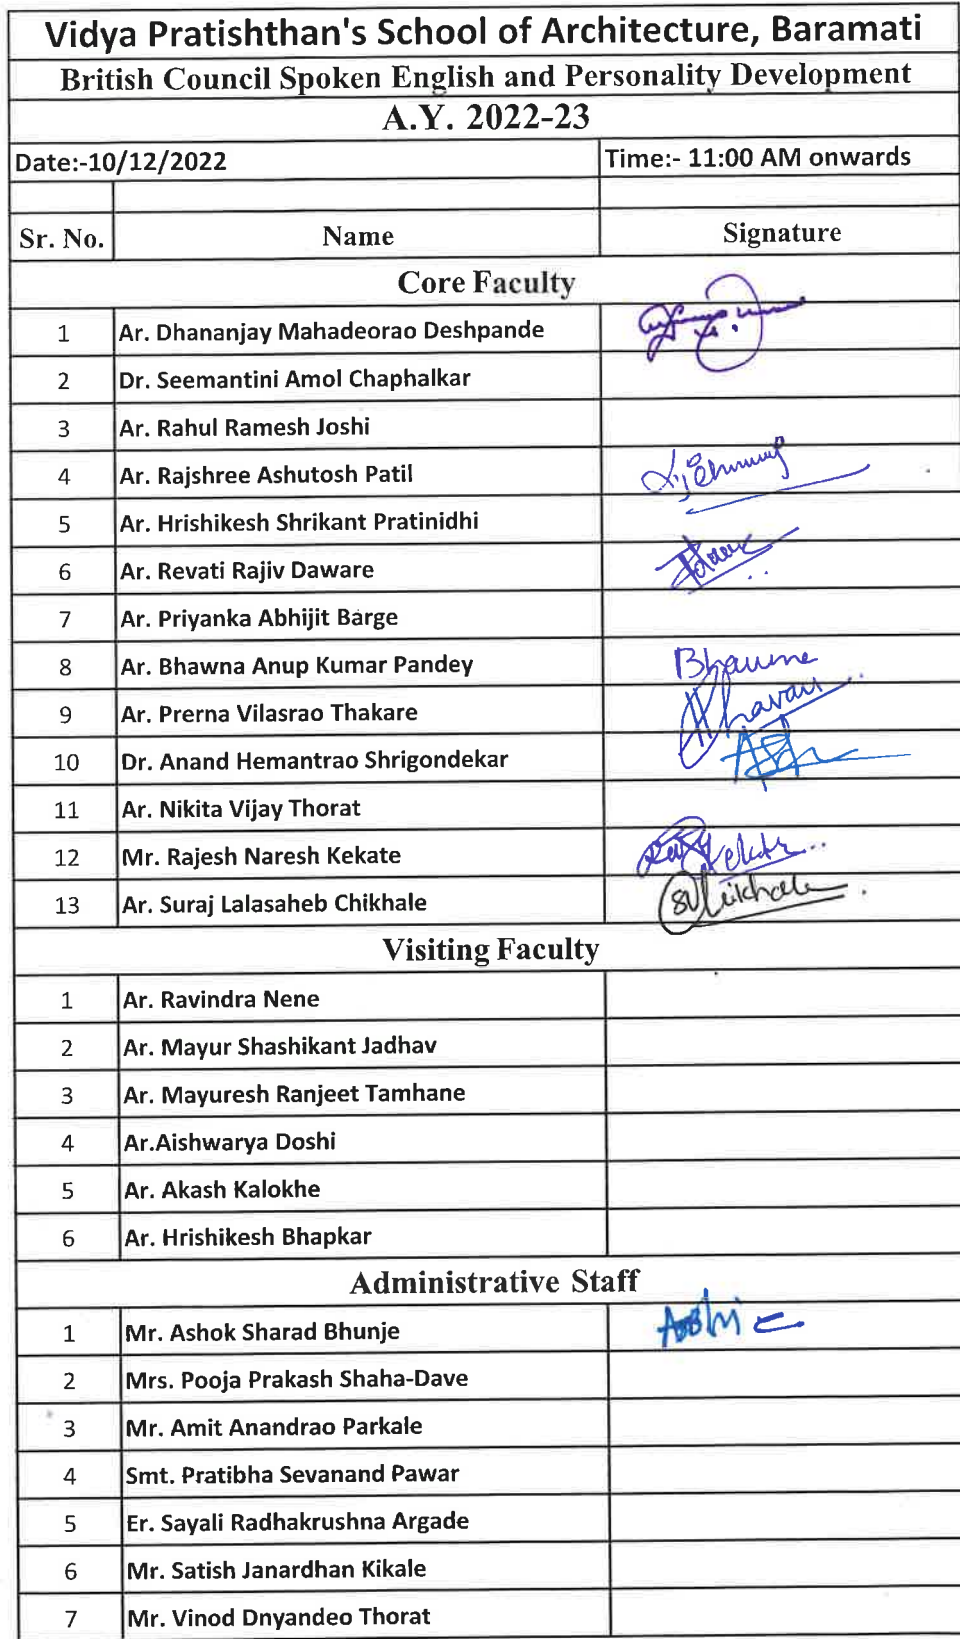 Vidya Pratishthan's School of Architecture, Baramati
British Council Spoken English and Personality Development
A.Y. 2022-23
Date:-10/12/2022 Time:- 11:00 AM onwards
Sr. No. Name Signature
Core Faculty
1 Ar. Dhananjay Mahadeorao Deshpande
2 Dr. Seemantini Amol Chaphalkar
3 Ar. Rahul Ramesh Joshi
4 Ar. Rajshree Ashutosh Patil
5 Ar. Hrishikesh Shrikant Pratinidhi
6 Ar. Revati Rajiv Daware
7 Ar. Priyanka Abhijit Barge
8 Ar. Bhawna Anup Kumar Pandey
9 Ar. Prerna Vilasrao Thakare
10 Dr. Anand Hemantrao Shrigondekar
11 Ar. Nikita Vijay Thorat
12 Mr. Rajesh Naresh Kekate
13 Ar. Suraj Lalasaheb Chikhale
Visiting Faculty
1 Ar. Ravindra Nene
2 Ar. Mayur Shashikant Jadhav
3 Ar. Mayuresh Ranjeet Tamhane
4 Ar.Aishwarya Doshi
5 Ar. Akash Kalokhe
6 Ar. Hrishikesh Bhapkar
Administrative Staff
1 Mr. Ashok Sharad Bhunje
2 Mrs. Pooja Prakash Shaha-Dave
3 Mr. Amit Anandrao Parkale
4 Smt. Pratibha Sevanand Pawar
5 Er. Sayali Radhakrushna Argade
6 Mr. Satish Janardhan Kikale
7 Mr. Vinod Dnyandeo Thorat